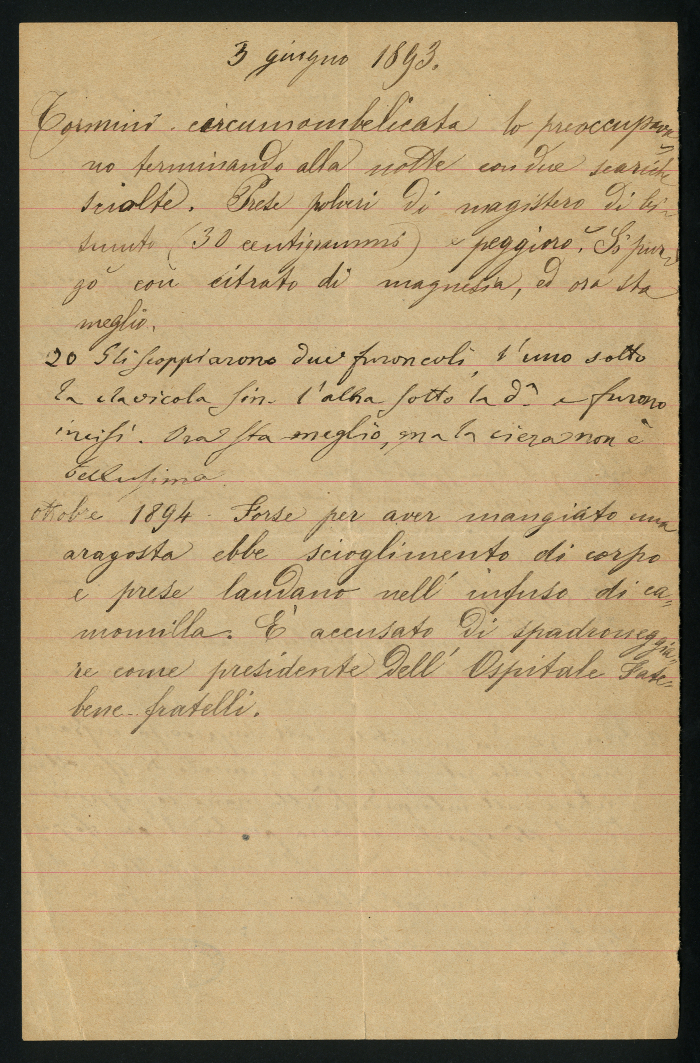 3 giugno 1893.
Tormini circumombelicata lo preoccupava-
no terminando alla notte con due scariche
sciolte. Prese polveri di magistero di bi-
smuto (30 centigrammi) e peggiorò. Si pur-
gò con citrato di magnesia, ed ora sta
meglio.
20 Gli scoppiarono due furoncoli, l'uno sotto
la clavicola sin. l'altra sotto la dª e furono
incisi. Ora sta meglio, ma la ciera non è
bellissima.
ottobre 1894 - Forse per aver mangiato una
aragosta ebbe scioglimento di corpo
e prese laudano nell' infuso di ca-
momilla. È accusato di spadroneggia-
re come presidente dell' Ospitale Fate-
bene-fratelli.